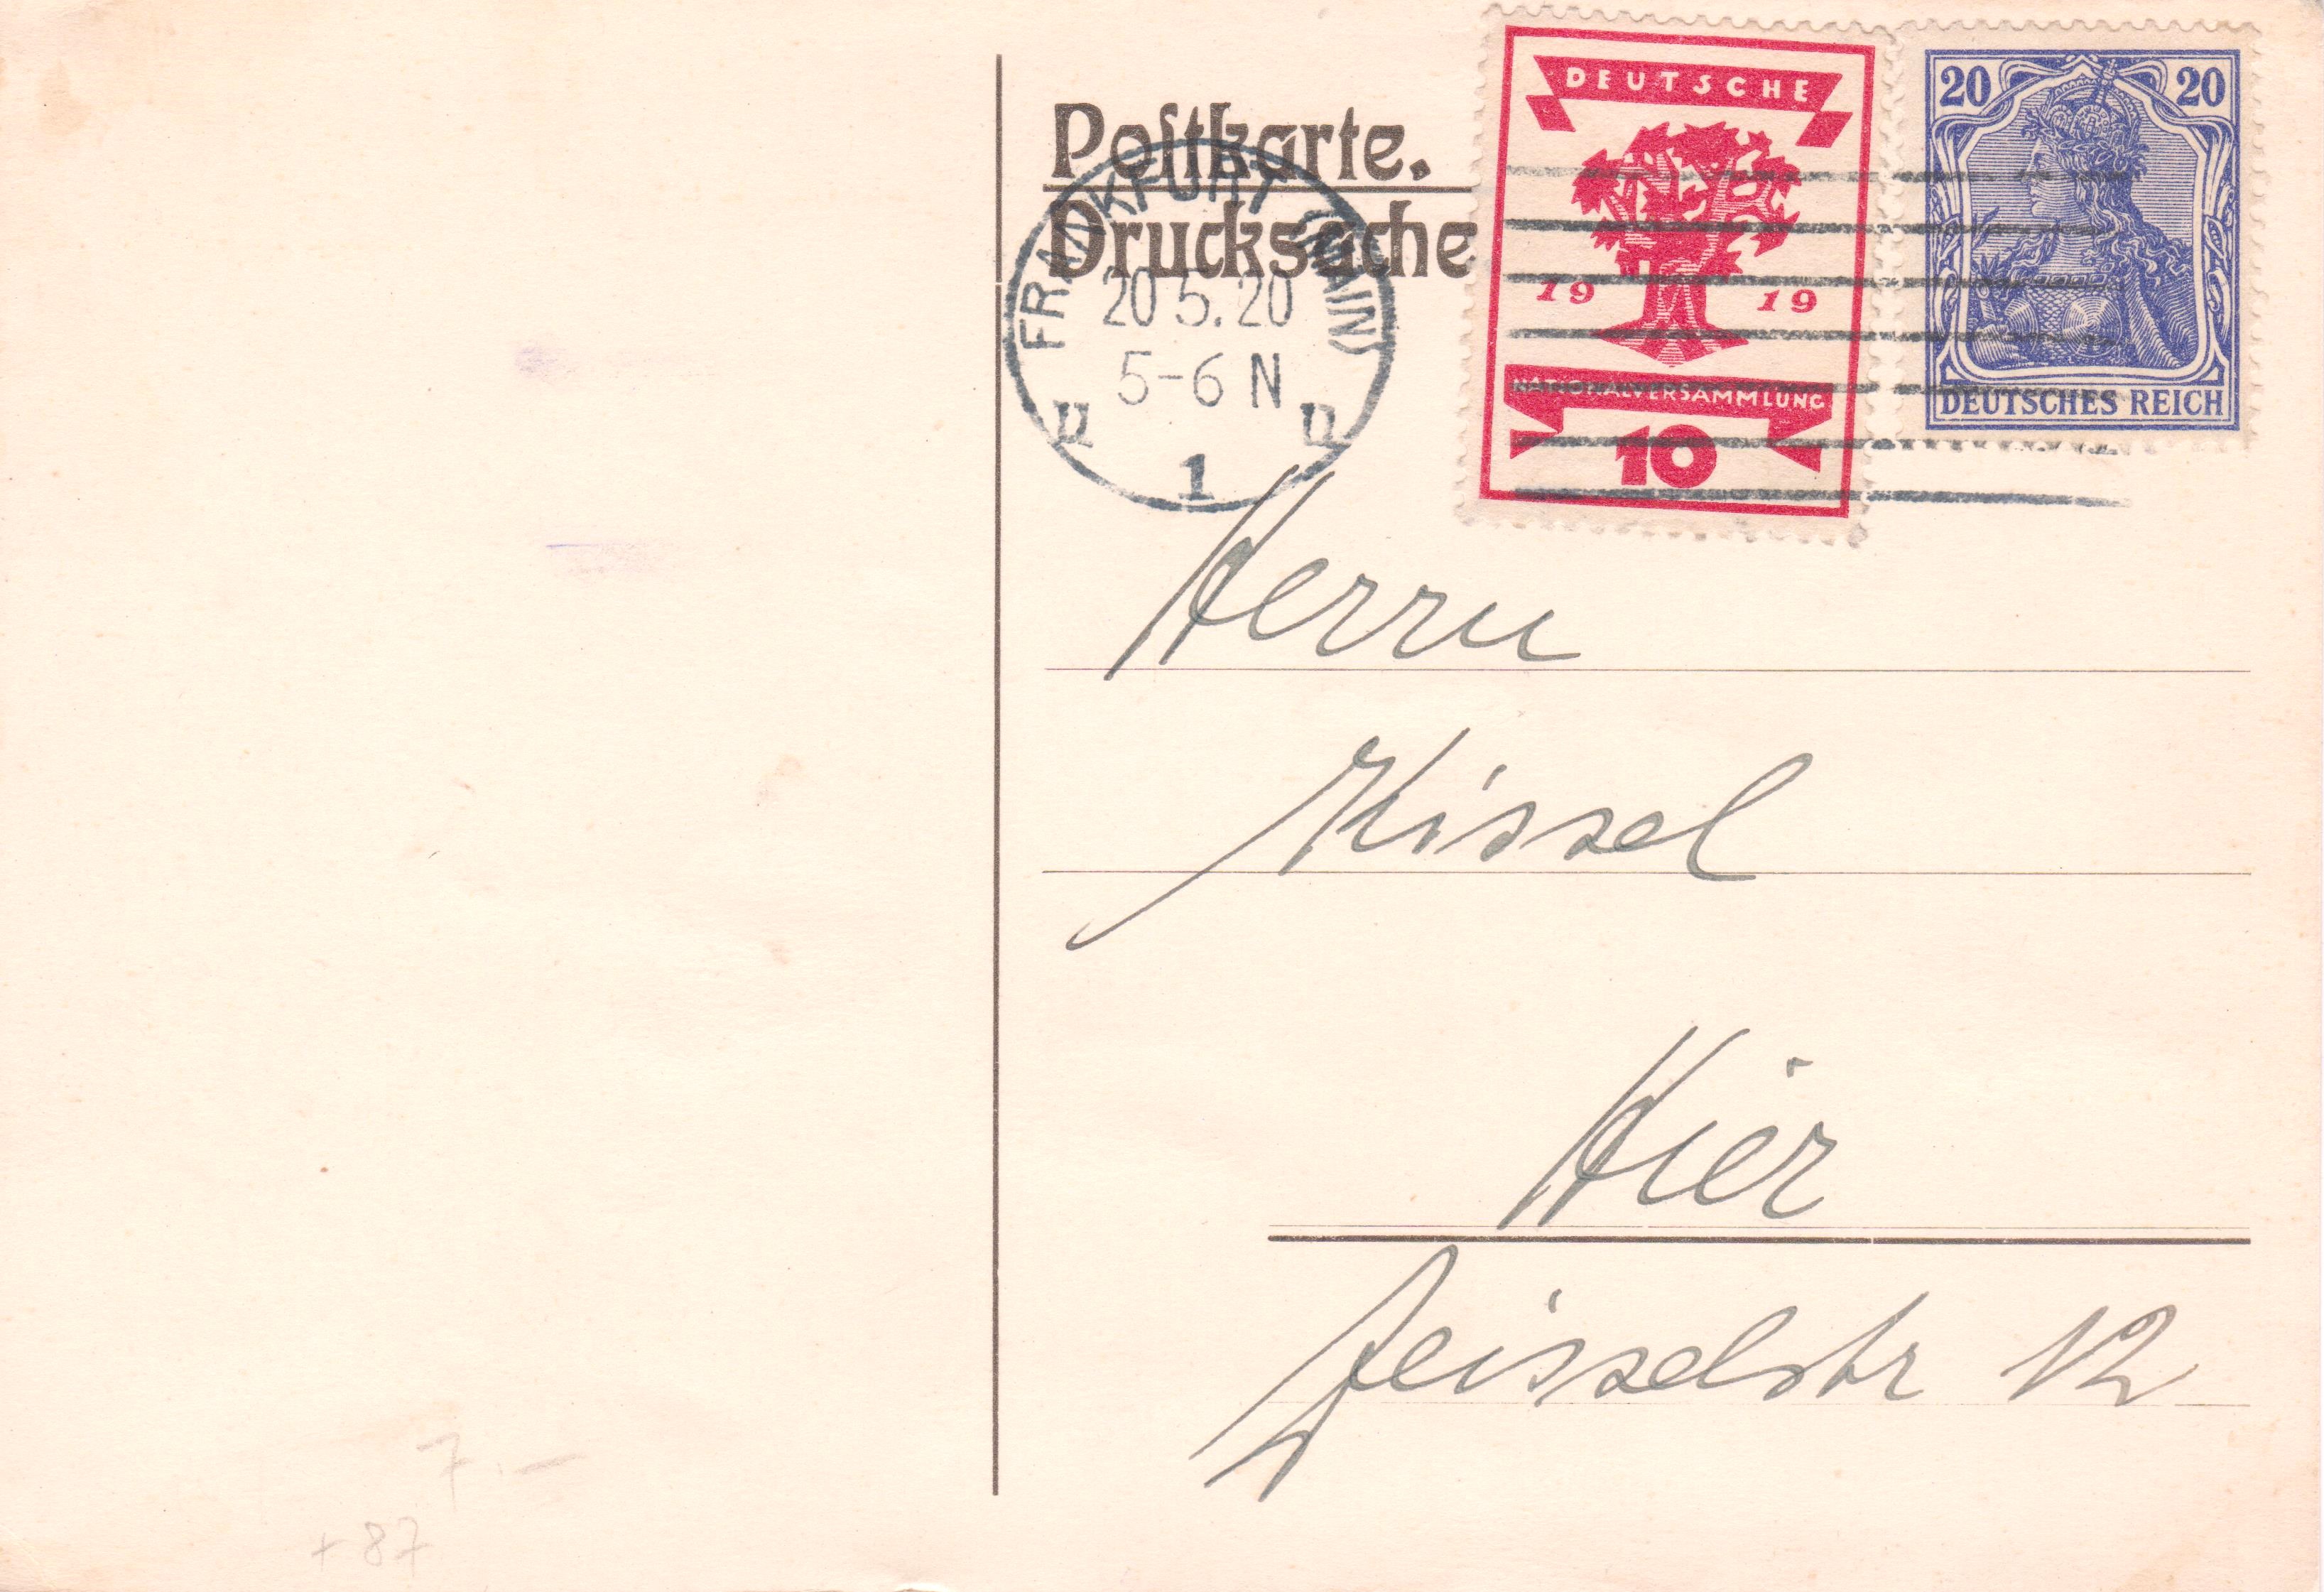 Poſtkarte.
Druckſache
FRANKFURT (MAIN)
20 5. 20
5-6 N
1
n n
DEUTSCHE
19 19
NATIONALVERSAMMLUNG
10
20 20
DEUTSCHES REICH
Herrn
Kissel
Hier
Zeisselstr 12
7.—
+ 87